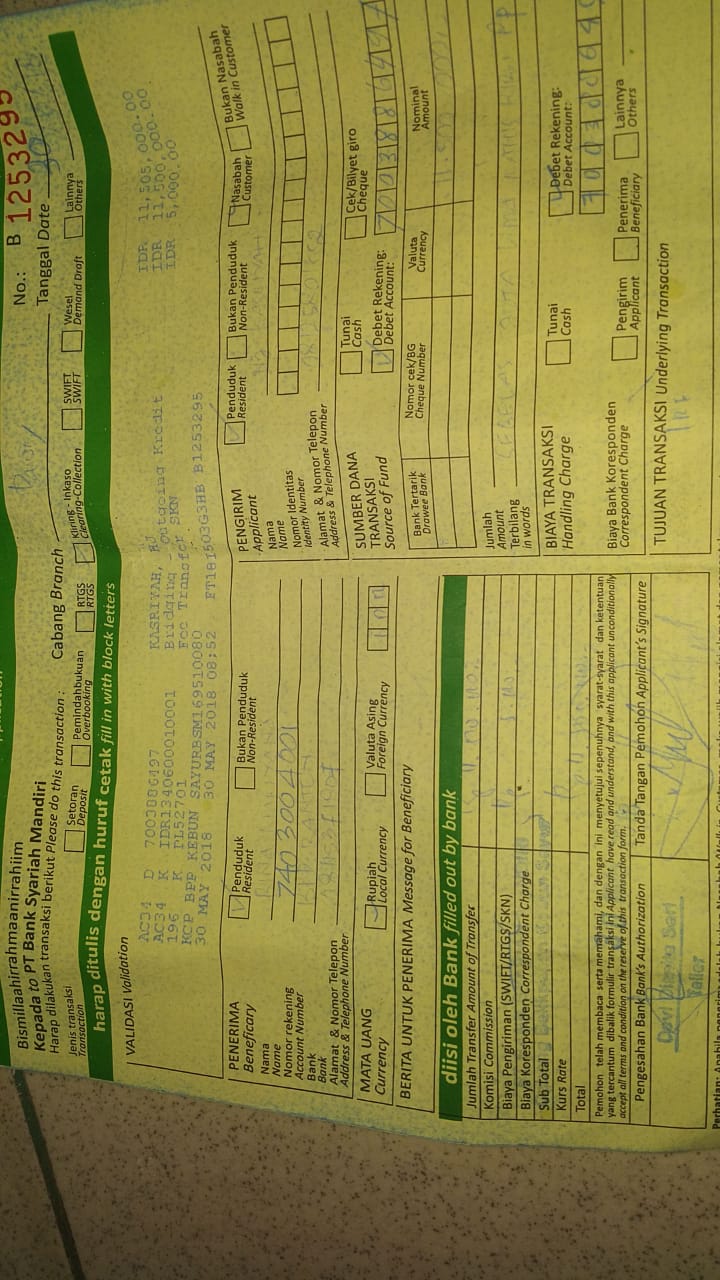 Bismillaahirrahmaanirrahiim
Kepada to PT Bank Syariah Mandiri
Harap dilakukan transaksi berikut Please do this transaction :
Cabang Branch
No.: B 1253295
Tanggal Date
Jenis transaksi
Transaction
Setoran
Deposit
Pemindahbukuan
Overbooking
RTGS
RTGS
Kliring - Inkaso
Clearing-Collection
SWIFT
SWIFT
Wesel
Demand Draft
Lainnya
Others
harap ditulis dengan huruf cetak fill in with block letters
VALIDASI Validation
AC34 D 7003886497 KASRIYAH, HJ IDR 11,505,000.00
AC34 K IDR1340600010001 Bridging Outgoing Kredit IDR 11,500,000.00
196 K PL52701 Fee Transfer SKN IDR 5,000.00
KCP BPP KEBUN SAYURBSM169510080
30 MAY 2018 30 MAY 2018 08:52 B1253295
PENERIMA
Beneficary
Penduduk
Resident
Bukan Penduduk
Non-Resident
Nama
Name
Nomor rekening
Account Number
7403004001
Bank
Bank
Alamat & Nomor Telepon
Address & Telephone Number
MATA UANG
Currency
Rupiah
Local Currency
Valuta Asing
Foreign Currency
BERITA UNTUK PENERIMA Message for Beneficiary
diisi oleh Bank filled out by bank
Jumlah Transfer Amount of Transfer
Komisi Commission
Biaya Pengiriman (SWIFT/RTGS/SKN)
Biaya Koresponden Correspondent Charge
Sub Total
Kurs Rate
Total
Pemohon telah membaca serta memahami, dan dengan ini menyetujui sepenuhnya syarat-syarat dan ketentuan
yang tercantum dibalik formulir transaksi ini Applicant have read and understand, and with this applicant unconditionally
accept all terms and condition on the reserve of this transaction form.
Pengesahan Bank Bank's Authorization
Tanda Tangan Pemohon Applicant's Signature
Sari
Teller
PENGIRIM
Applicant
Penduduk
Resident
Bukan Penduduk
Non-Resident
Nasabah
Customer
Bukan Nasabah
Walk in Customer
Nama
Name
Nomor Identitas
Identity Number
Alamat & Nomor Telepon
Address & Telephone Number
SUMBER DANA
TRANSAKSI
Source of Fund
Tunai
Cash
Cek/Bilyet giro
Cheque
Debet Rekening:
Debet Account:
7003886497
Bank Tertarik
Drawee Bank
Nomor cek/BG
Cheque Number
Valuta
Currency
Nominal
Amount
Jumlah
Amount
Terbilang
in words
BIAYA TRANSAKSI
Handling Charge
Tunai
Cash
Debet Rekening:
Debet Account:
Biaya Bank Koresponden
Correspondent Charge
Pengirim
Applicant
Penerima
Beneficiary
Lainnya
Others
TUJUAN TRANSAKSI Underlying Transaction